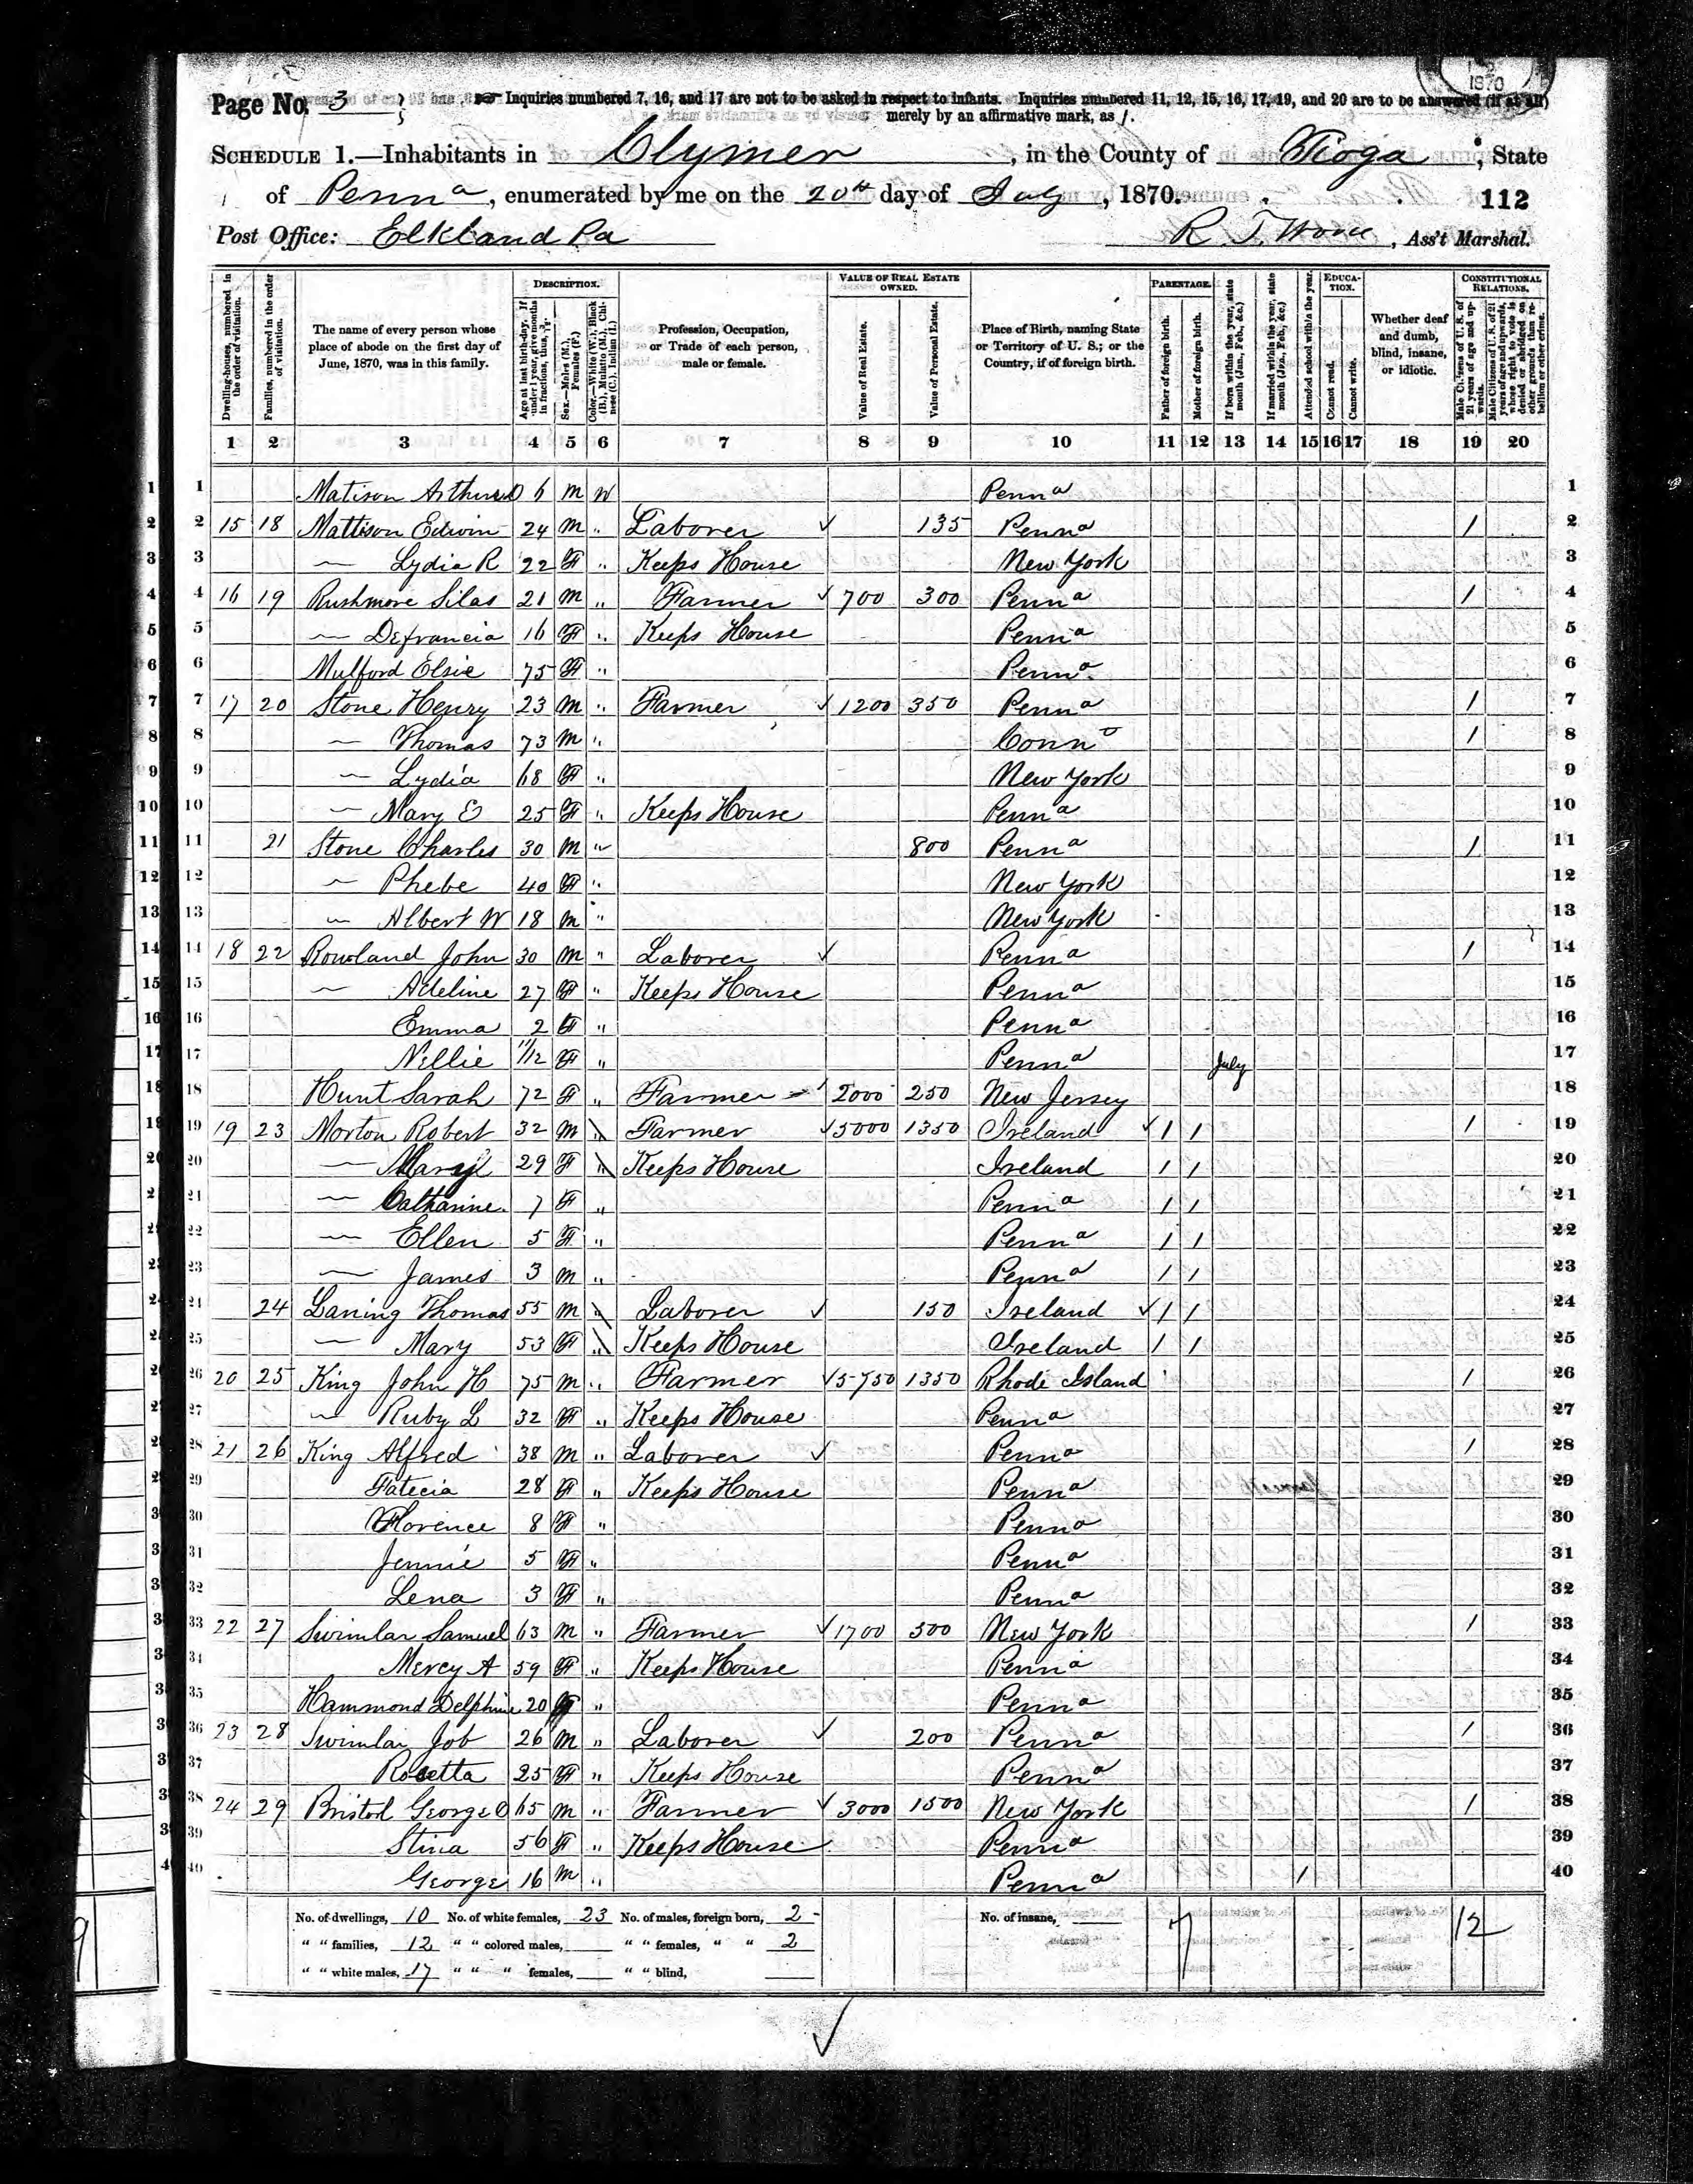 1870
Page No. 3 Inquiries numbered 7, 16, and 17 are not to be asked in respect to infants. Inquiries numbered 11, 12, 15, 16, 17, 19, and 20 are to be answered (if at all)
merely by an affirmative mark, as /.
SCHEDULE 1.—Inhabitants in Clymer, in the County of Tioga, State
of Penna, enumerated by me on the 20th day of July, 1870. 112
Post Office: Elkland Pa R T, Ass't Marshal.
Dwelling-houses, numbered in the order of visitation.
Families, numbered in the order of visitation.
The name of every person whose place of abode on the first day of June, 1870, was in this family.
DESCRIPTION.
Age at last birth-day. If under 1 year, give months in fractions, thus, 3/12.
Sex.—Males (M.), Females (F.)
Color.—White (W.), Black (B.), Mulatto (M.), Chinese (C.), Indian (I.)
Profession, Occupation, or Trade of each person, male or female.
VALUE OF REAL ESTATE OWNED.
Value of Real Estate.
Value of Personal Estate.
Place of Birth, naming State or Territory of U. S.; or the Country, if of foreign birth.
PARENTAGE.
Father of foreign birth.
Mother of foreign birth.
If born within the year, state month (Jan., Feb., &c.)
If married within the year, state month (Jan., Feb., &c.)
Attended school within the year.
EDUCATION.
Cannot read.
Cannot write.
Whether deaf and dumb, blind, insane, or idiotic.
CONSTITUTIONAL RELATIONS.
Male Citizens of U. S. of 21 years of age and upwards.
Male Citizens of U. S. of 21 years of age and upwards, whose right to vote is denied or abridged on other grounds than rebellion or other crime.
1 2 3 4 5 6 7 8 9 10 11 12 13 14 15 16 17 18 19 20
1 Matison Arthur D 6 M W Penna 1
2 15 18 Mattison Edwin 24 M " Laborer ✓ 135 Penna / 2
3 — Lydia R 22 F " Keeps House New York 3
4 16 19 Rushmore Silas 21 M " Farmer ✓ 700 300 Penna / 4
5 — Defrancia 16 F " Keeps House Penna 5
6 Mulford Elsie 75 F " Penna 6
7 17 20 Stone Henry 23 M " Farmer ✓ 1200 350 Penna / 7
8 — Thomas 73 M " Conn / 8
9 — Lydia 68 F " New York 9
10 — Mary E 25 F " Keeps House Penna 10
11 21 Stone Charles 30 M " 800 Penna / 11
12 — Phebe 40 F " New York 12
13 — Albert W 18 M " New York 13
14 18 22 Rowland John 30 M " Laborer ✓ Penna / 14
15 — Adeline 27 F " Keeps House Penna 15
16 Emma 2 F " Penna 16
17 Nellie 11/12 F " Penna July 17
18 Hunt Sarah 72 F " Farmer 2000 250 New Jersey 18
19 19 23 Morton Robert 32 M " Farmer ✓ 5000 1350 Ireland ✓ / / / 19
20 — Mary 29 F " Keeps House Ireland / / 20
21 — Catharine 7 F " Penna / / 21
22 — Ellen 5 F " Penna / / 22
23 — James 3 M " Penna / / 23
24 24 Laning Thomas 55 M " Laborer ✓ 150 Ireland ✓ / / 24
25 — Mary 53 F " Keeps House Ireland / / 25
26 20 25 King John H 75 M " Farmer ✓ 5750 1350 Rhode Island / 26
27 — Ruby L 32 F " Keeps House Penna 27
28 21 26 King Alfred 38 M " Laborer ✓ Penna / 28
29 Fatecia 28 F " Keeps House Penna 29
30 Florence 8 F " Penna 30
31 Jennie 5 F " Penna 31
32 Lena 3 F " Penna 32
33 22 27 Swimlar Samuel 63 M " Farmer ✓ 1700 500 New York / 33
34 Mercy A 59 F " Keeps House Penna 34
35 Hammond Delphine 20 F " Penna 35
36 23 28 Swimlar Job 26 M " Laborer ✓ 200 Penna / 36
37 Rosetta 25 F " Keeps House Penna 37
38 24 29 Bristol George O 65 M " Farmer ✓ 3000 1500 New York / 38
39 Stina 56 F " Keeps House Penna 39
40 George 16 M " Penna / 40
No. of dwellings, 10 No. of white females, 23 No. of males, foreign born, 2 No. of insane, 7 12
" " families, 12 " " colored males, " " females, " " 2
" " white males, 17 " " " females, " " blind,